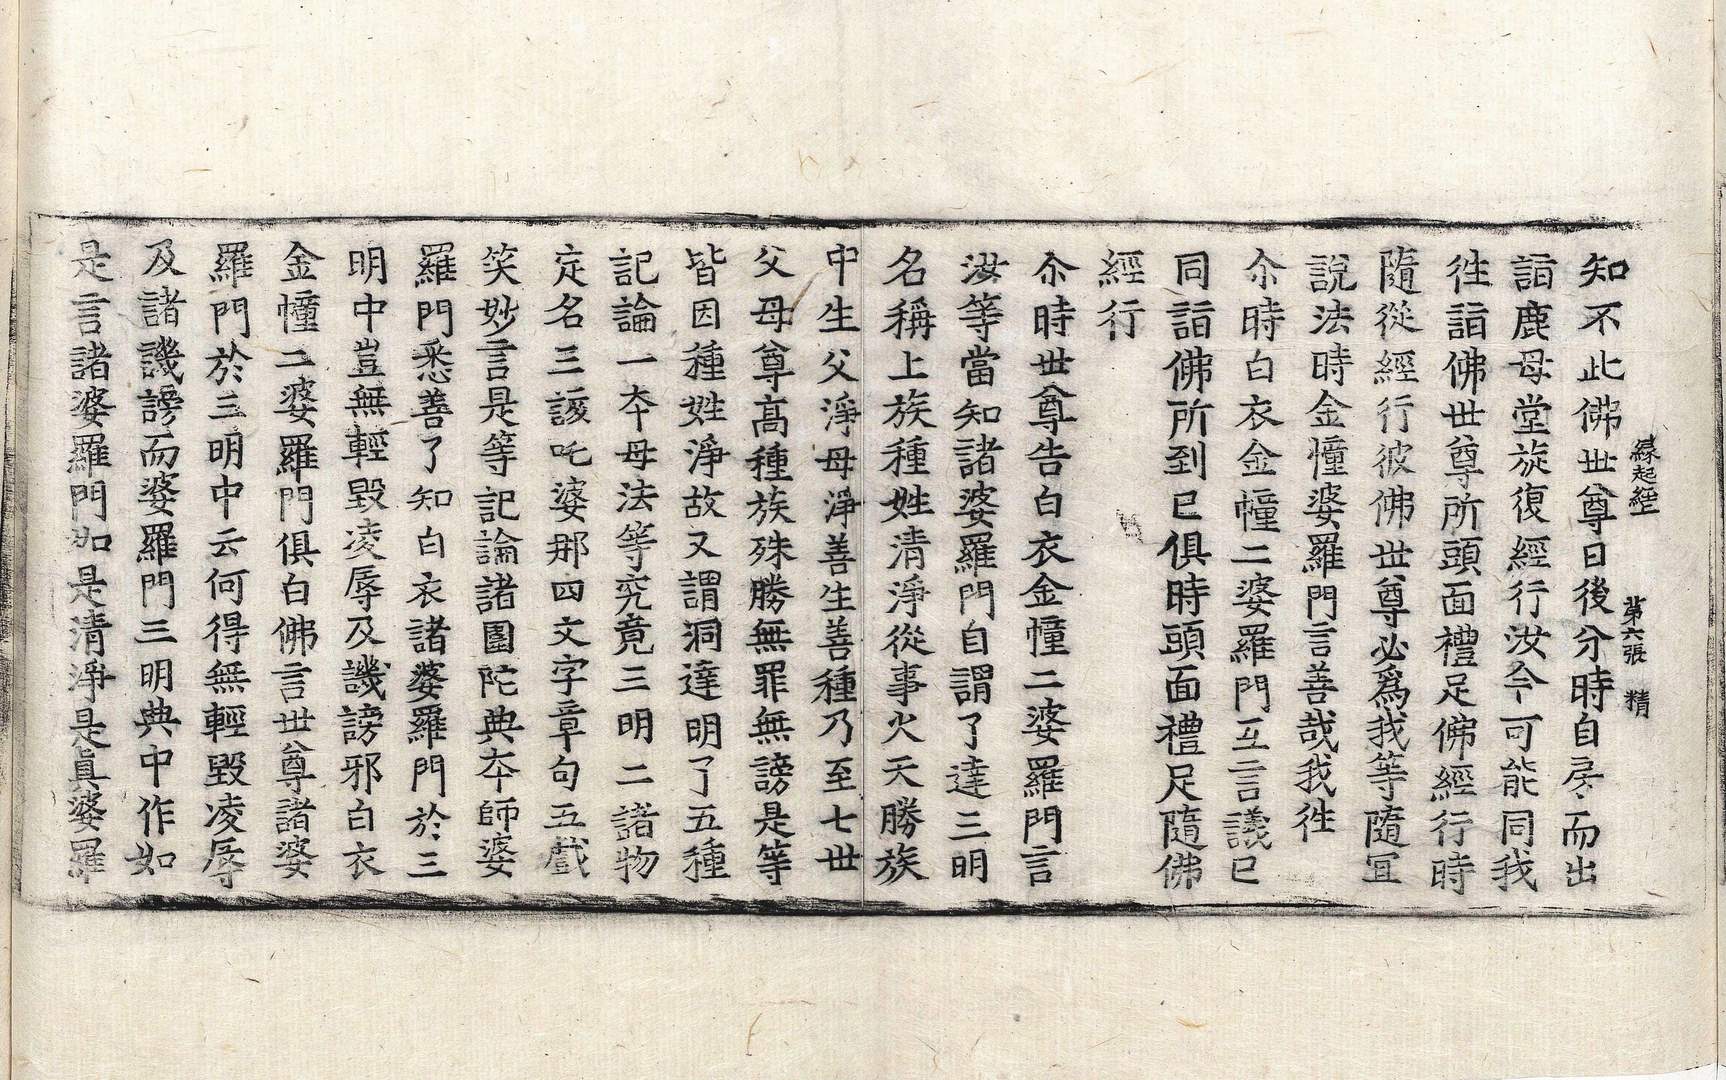 緣起經　第六張　精
知不此佛世尊日後分時自房而出
詣鹿母堂旋復經行汝今可能同我
徃詣佛世尊所頭面禮足佛經行時
隨從經行彼佛世尊必爲我等隨冝
說法時金幢婆羅門言善哉我徃
尒時白衣金幢二婆羅門互言議已
同詣佛所到已俱時頭面禮足隨佛
經行
尒時世尊告白衣金幢二婆羅門言
汝等當知諸婆羅門自謂了達三明
名稱上族種姓清淨從事火天勝族
中生父淨母淨善生善種乃至七世
父母尊高種族殊勝無罪無謗是等
皆因種姓淨故又謂洞達明了五種
記論一夲母法等究竟三明二諸物
定名三該吒婆那四文字章句五戲
笑妙言是等記論諸園陀典夲師婆
羅門悉善了知白衣諸婆羅門於三
明中豈無輕毀凌辱及譏謗邪白衣
金幢二婆羅門俱白佛言世尊諸婆
羅門於三明中云何得無輕毀凌辱
及諸譏謗而婆羅門三明典中作如
是言諸婆羅門如是清淨是眞婆羅